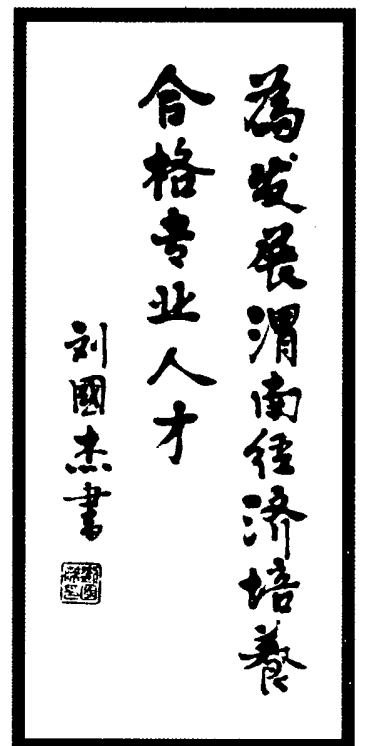 為发展渭南经济培養
合格专业人才
刘國杰書